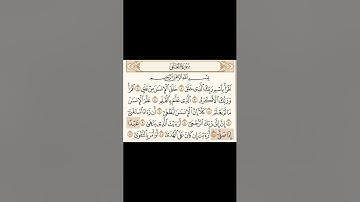 سُورَةُ العَلَقِ
بِسْمِ اللَّهِ الرَّحْمَٰنِ الرَّحِيمِ
اقْرَأْ بِاسْمِ رَبِّكَ الَّذِي خَلَقَ ۝ خَلَقَ الْإِنسَانَ مِنْ عَلَقٍ ۝ اقْرَأْ
وَرَبُّكَ الْأَكْرَمُ ۝ الَّذِي عَلَّمَ بِالْقَلَمِ ۝ عَلَّمَ الْإِنسَانَ
مَا لَمْ يَعْلَمْ ۝ كَلَّا إِنَّ الْإِنسَانَ لَيَطْغَىٰ ۝ أَن رَّآهُ اسْتَغْنَىٰ
۝ إِنَّ إِلَىٰ رَبِّكَ الرُّجْعَىٰ ۝ أَرَأَيْتَ الَّذِي يَنْهَىٰ ۝ عَبْدًا
إِذَا صَلَّىٰ ۝ أَرَأَيْتَ إِن كَانَ عَلَى الْهُدَىٰ ۝ أَوْ أَمَرَ بِالتَّقْوَىٰ ۝